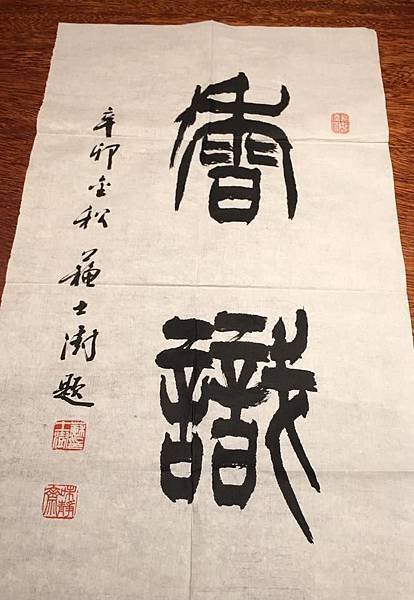 香識
辛卯金秋蘇士澍題